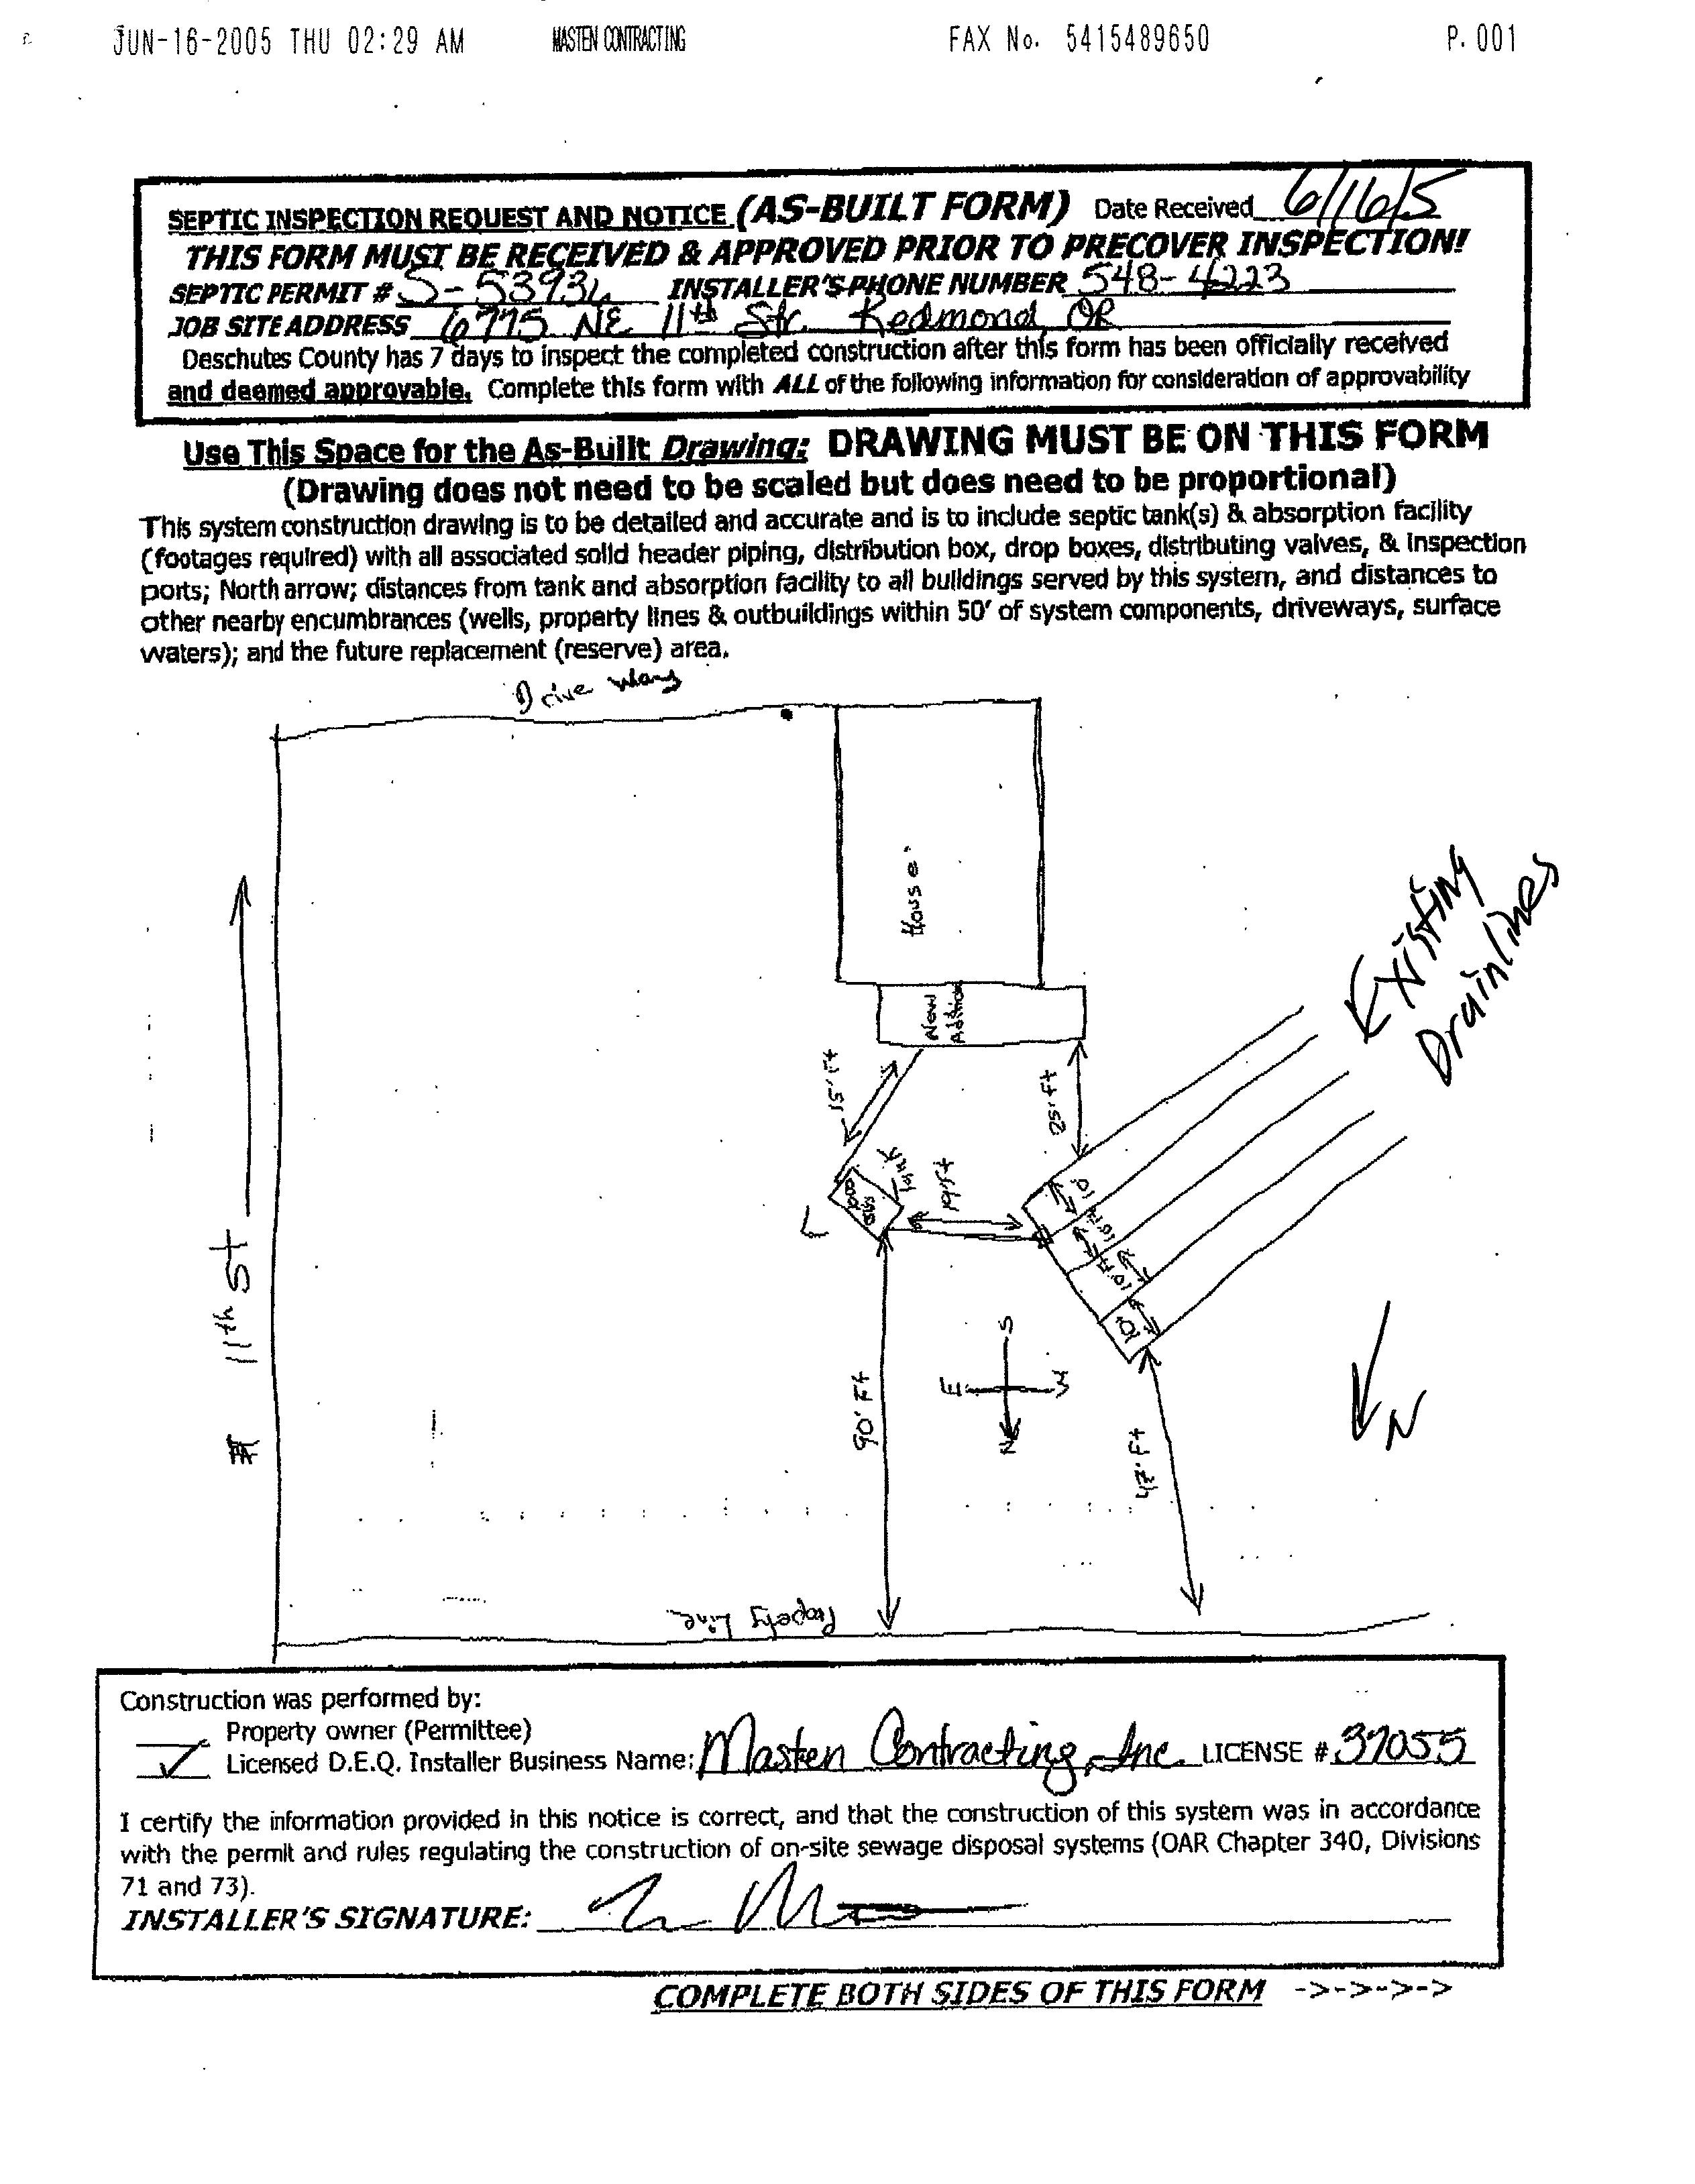 JUN-16-2005 THU 02:29 AM MASTEN CONTRACTING FAX No. 5415489650 P. 001
SEPTIC INSPECTION REQUEST AND NOTICE (AS-BUILT FORM) Date Received 6/16/5
THIS FORM MUST BE RECEIVED & APPROVED PRIOR TO PRECOVER INSPECTION!
SEPTIC PERMIT # INSTALLER'S PHONE NUMBER 548-4223
JOB SITE ADDRESS 6775 NE 11th Str. Redmond, OR
Deschutes County has 7 days to inspect the completed construction after this form has been officially received
and deemed approvable. Complete this form with ALL of the following information for consideration of approvability
Use This Space for the As-Built Drawing: DRAWING MUST BE ON THIS FORM
(Drawing does not need to be scaled but does need to be proportional)
This system construction drawing is to be detailed and accurate and is to include septic tank(s) & absorption facility
(footages required) with all associated solid header piping, distribution box, drop boxes, distributing valves, & inspection
ports; North arrow; distances from tank and absorption facility to all buildings served by this system, and distances to
other nearby encumbrances (wells, property lines & outbuildings within 50' of system components, driveways, surface
waters); and the future replacement (reserve) area.
Drive way
House
New
Addition
Existing
Drainlines
15' Ft
25' Ft
Tank
19'5 Ft
10
10 Ft
10 Ft
10'
11th St
S
E W
N
90' Ft
47' Ft
N
Property Line
Construction was performed by:
Property owner (Permittee)
✓ Licensed D.E.Q. Installer Business Name: Masten Contracting, Inc. LICENSE # 37055
I certify the information provided in this notice is correct, and that the construction of this system was in accordance
with the permit and rules regulating the construction of on-site sewage disposal systems (OAR Chapter 340, Divisions
71 and 73).
INSTALLER'S SIGNATURE:
COMPLETE BOTH SIDES OF THIS FORM ->->->->